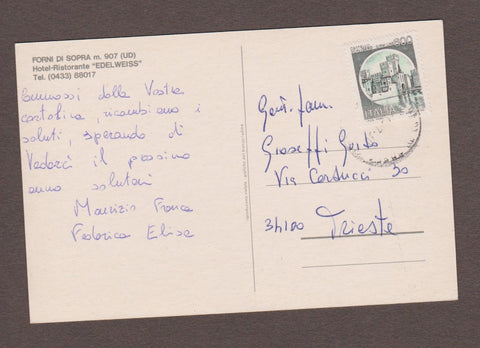 FORNI DI SOPRA m. 907 (UD)
Hotel-Ristorante "EDELWEISS"
Tel. (0433) 88017
Commossi dalla Vostra
cartolina, ricambiamo i
saluti, sperando di
Vederci il prossimo
anno salutoni
Maurizio Franca
Federica Elisa
Gent. fam.
Gioseffi
Via Carducci 30
34100 Trieste
ITALIA